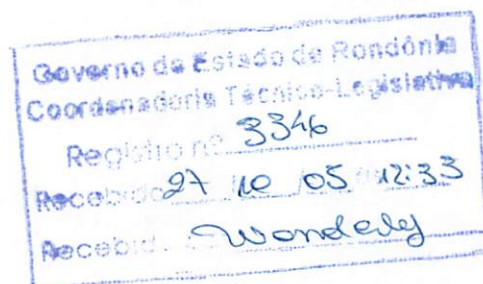 Governo do Estado de Rondônia
Coordenadoria Técnico-Legislativa
Registro nº 3346
Recebido 27 10 05 12:33
Recebid Wonderly